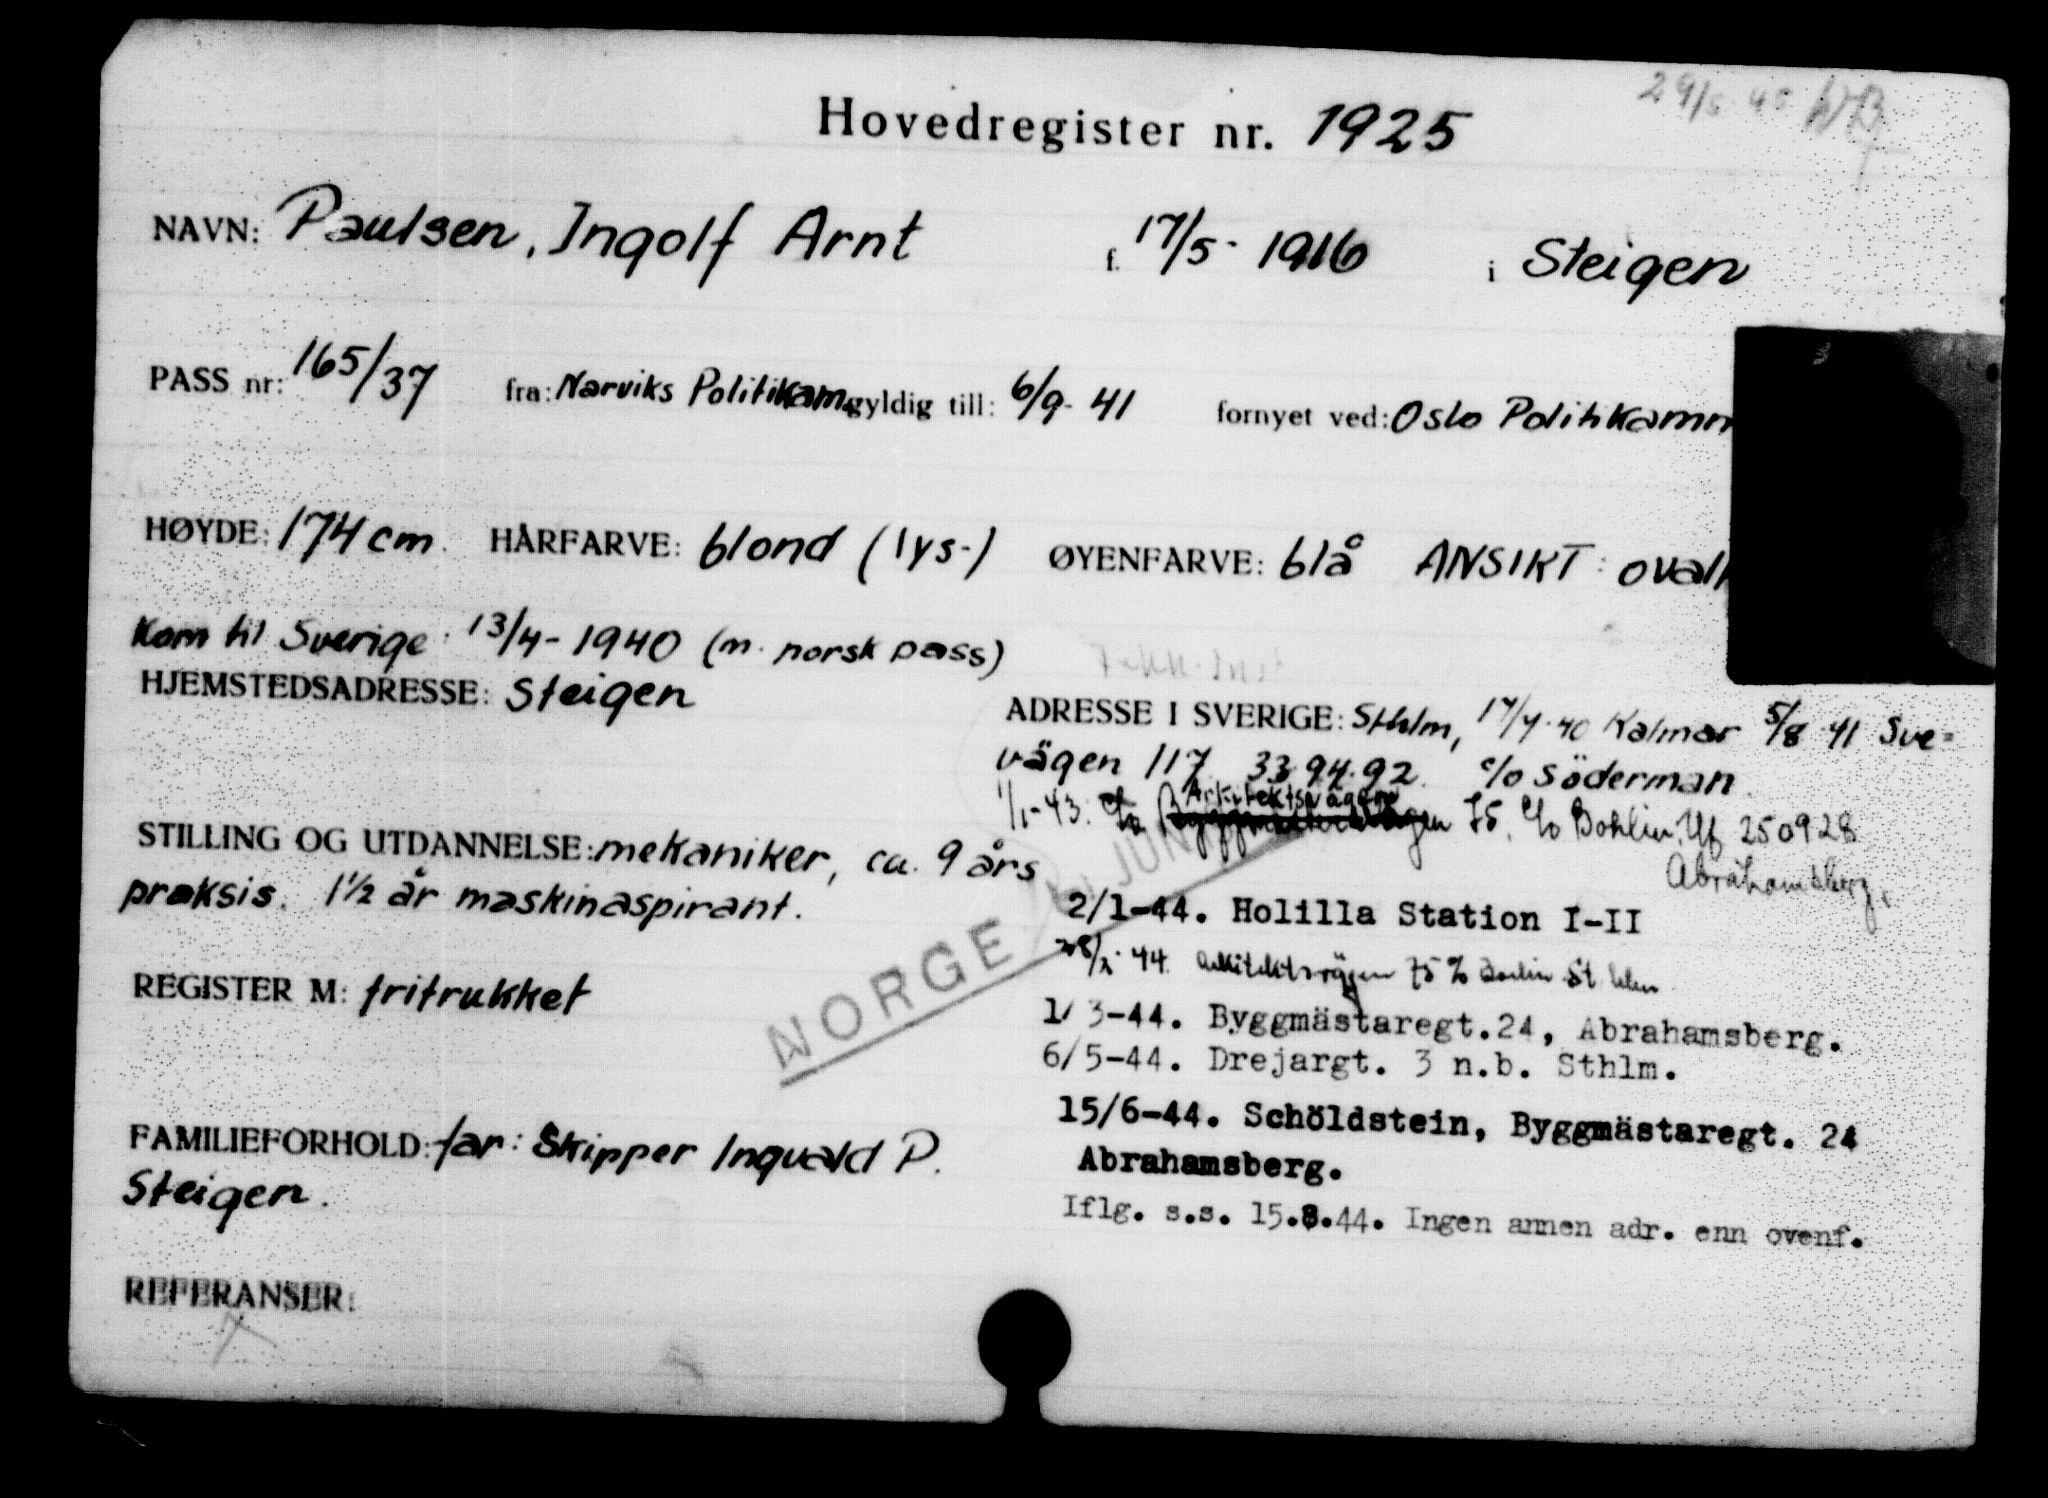 29/5 45
Hovedregister nr. 1925
NAVN: Paulsen, Ingolf Arnt f. 17/5- 1916 i Steigen
PASS nr: 165/37 fra: Narviks Politikam. gyldig till: 6/9- 41 fornyet ved: Oslo Politikamm
HØYDE: 174 cm. HÅRFARVE: blond (lys-) ØYENFARVE: blå ANSIKT: ovalt
Kom til Sverige: 13/4- 1940 (m. norsk pass)
HJEMSTEDSADRESSE: Steigen
ADRESSE I SVERIGE: Sthlm, 17/4-40 Kalmar 5/8 41 Sve=
vägen 117 33 94 92 c/o Söderman
Arkitektsvägen
1/1-43. 75. c/o Bohlin. 250928
Abrahamsberg.
STILLING OG UTDANNELSE: mekaniker, ca. 9 års
praksis. 1½ år maskinaspirant.
2/1-44. Holilla Station I-II
44. Arkitektsvägen 75 Sthlm
NORGE JUNI
REGISTER M: fritrukket
1/ 3-44. Byggmästaregt.24, Abrahamsberg.
6/5-44. Drejargt. 3 n.b. Sthlm.
15/6-44. Schöldstein, Byggmästaregt. 24
Abrahamsberg.
Iflg. s.s. 15.8.44. Ingen annen adr. enn ovenf.
FAMILIEFORHOLD: far: Skipper Ingvald P.
Steigen.
REFERANSER: